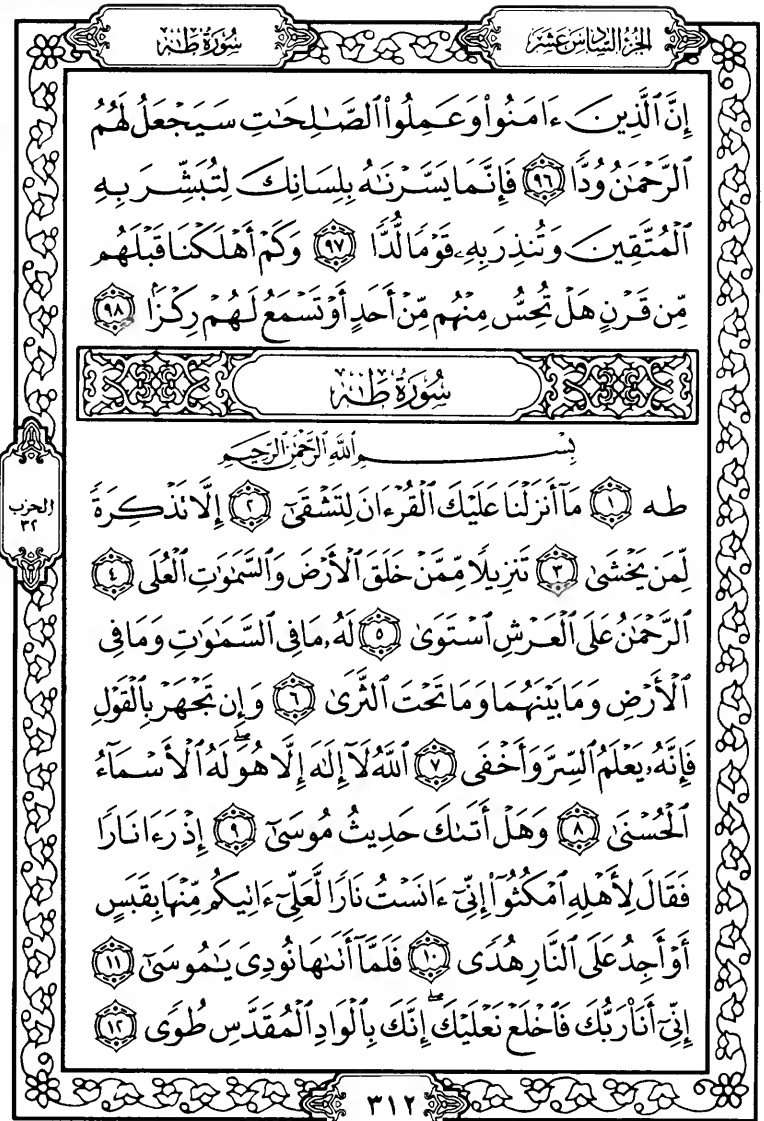 الجزء السادس عشر
سُورَةُ طه
إِنَّ ٱلَّذِينَ ءَامَنُوا۟ وَعَمِلُوا۟ ٱلصَّٰلِحَٰتِ سَيَجْعَلُ لَهُمُ
ٱلرَّحْمَٰنُ وُدًّا ٩٦ فَإِنَّمَا يَسَّرْنَٰهُ بِلِسَانِكَ لِتُبَشِّرَ بِهِ
ٱلْمُتَّقِينَ وَتُنذِرَ بِهِۦ قَوْمًا لُّدًّا ٩٧ وَكَمْ أَهْلَكْنَا قَبْلَهُم
مِّن قَرْنٍ هَلْ تُحِسُّ مِنْهُم مِّنْ أَحَدٍ أَوْ تَسْمَعُ لَهُمْ رِكْزًۢا ٩٨
سُورَةُ طه
بِسْمِ ٱللَّهِ ٱلرَّحْمَٰنِ ٱلرَّحِيمِ
طه ١ مَآ أَنزَلْنَا عَلَيْكَ ٱلْقُرْءَانَ لِتَشْقَىٰٓ ٢ إِلَّا تَذْكِرَةً
لِّمَن يَخْشَىٰ ٣ تَنزِيلًا مِّمَّنْ خَلَقَ ٱلْأَرْضَ وَٱلسَّمَٰوَٰتِ ٱلْعُلَى ٤
ٱلرَّحْمَٰنُ عَلَى ٱلْعَرْشِ ٱسْتَوَىٰ ٥ لَهُۥ مَا فِى ٱلسَّمَٰوَٰتِ وَمَا فِى
ٱلْأَرْضِ وَمَا بَيْنَهُمَا وَمَا تَحْتَ ٱلثَّرَىٰ ٦ وَإِن تَجْهَرْ بِٱلْقَوْلِ
فَإِنَّهُۥ يَعْلَمُ ٱلسِّرَّ وَأَخْفَى ٧ ٱللَّهُ لَآ إِلَٰهَ إِلَّا هُوَۖ لَهُ ٱلْأَسْمَآءُ
ٱلْحُسْنَىٰ ٨ وَهَلْ أَتَىٰكَ حَدِيثُ مُوسَىٰٓ ٩ إِذْ رَءَا نَارًا
فَقَالَ لِأَهْلِهِ ٱمْكُثُوٓا۟ إِنِّىٓ ءَانَسْتُ نَارًا لَّعَلِّىٓ ءَاتِيكُم مِّنْهَا بِقَبَسٍ
أَوْ أَجِدُ عَلَى ٱلنَّارِ هُدًى ١٠ فَلَمَّآ أَتَىٰهَا نُودِىَ يَٰمُوسَىٰٓ ١١
إِنِّىٓ أَنَا۠ رَبُّكَ فَٱخْلَعْ نَعْلَيْكَۖ إِنَّكَ بِٱلْوَادِ ٱلْمُقَدَّسِ طُوًى ١٢
الحزب
٣٢
٣١٢